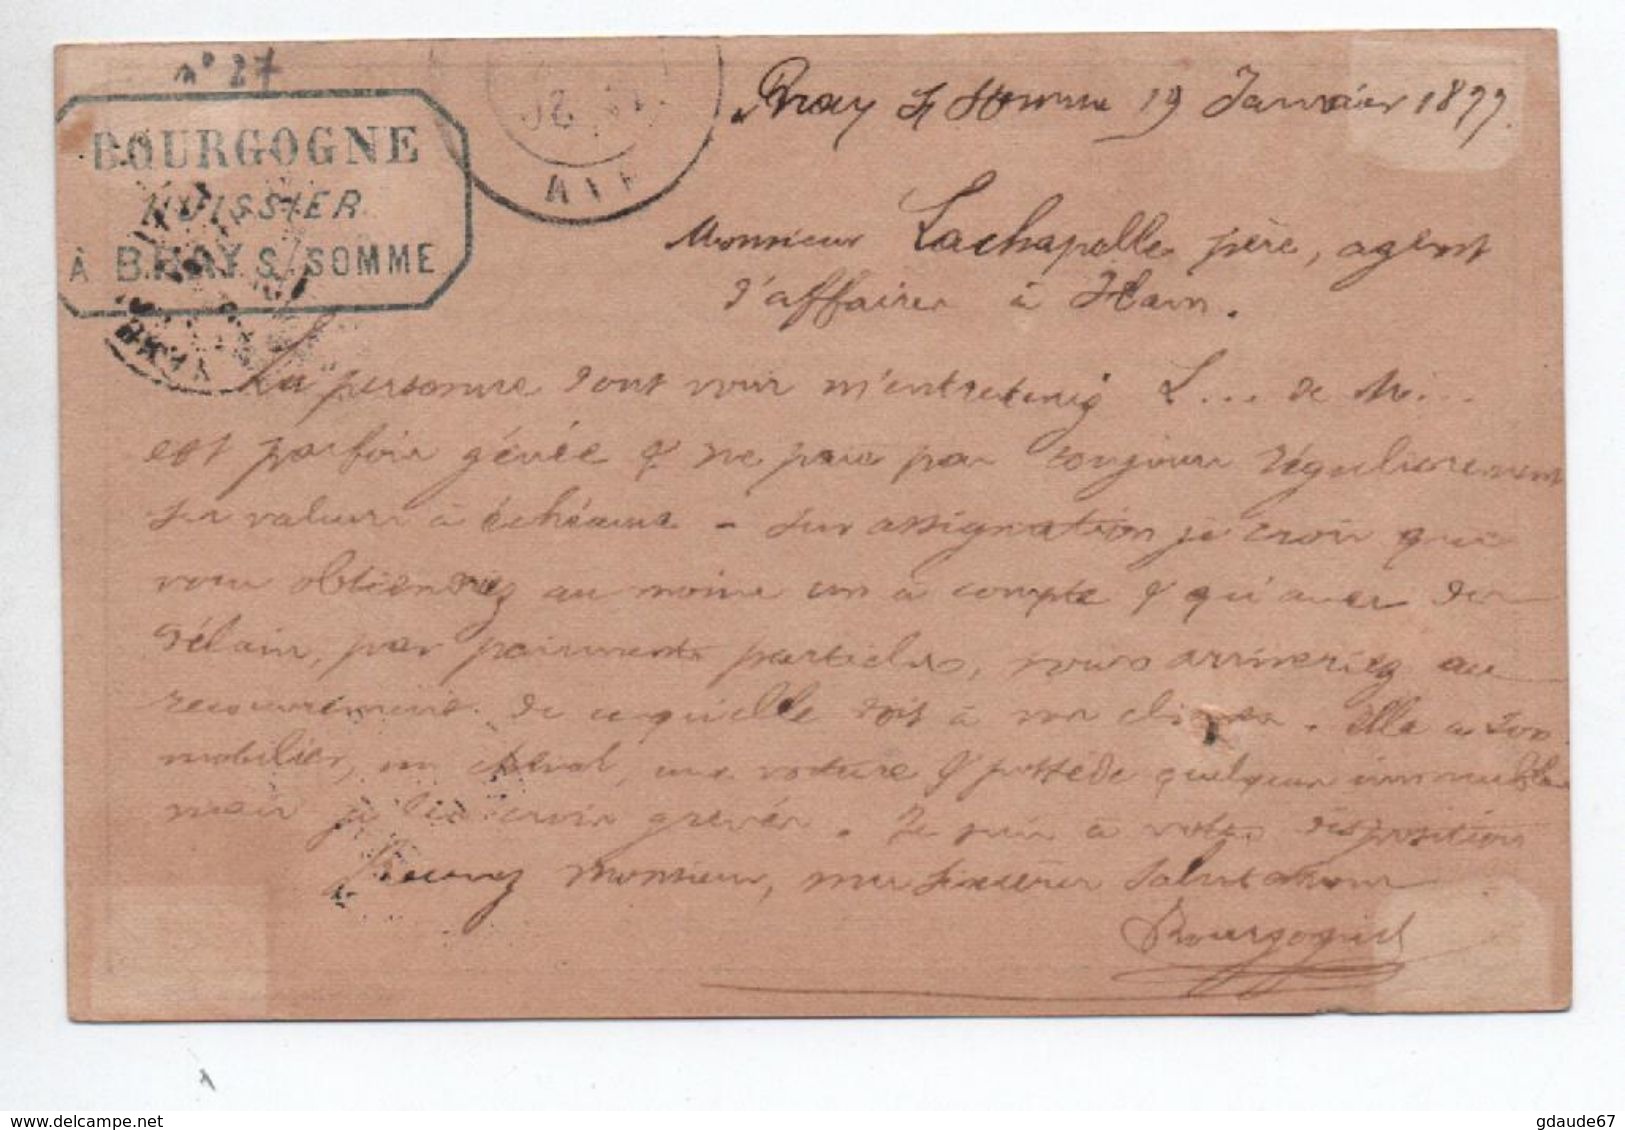 n° 27
BOURGOGNE
HUISSIER
À BRAY S. SOMME
Bray s/ Somme 19 Janvier 1877.
Monsieur Lachapelle père, agent
d'affaires à Ham.
La personne dont vous m'entreteniez L... de M...
est parfois gênée & ne paie pas toujours régulièrement
ses valeurs à échéance - sur assignation je crois que
vous obtiendriez au moins un à compte & qu'avec des
délais, par paiements partiels, vous arriveriez au
recouvrement de ce qu'elle doit à vos clients. Elle a son
mobilier, un cheval, une voiture & possède quelques immeubles
mais je les crois grevés. Je suis à votre disposition
Recevez Monsieur, mes sincères salutations
Bourgogne
delcampe.net
gdaude67